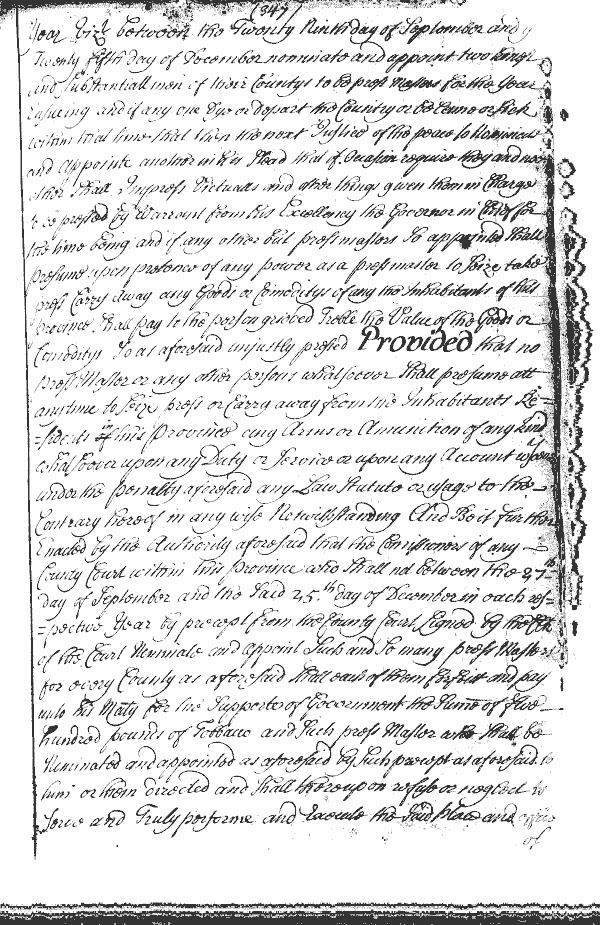 (347)
Year Vizt between the Twenty Ninth day of September and y
Twenty fifth day of December nominate and appoint two honest
and substantiall men of their Countys to be press Masters for the Year
Ensueing and if any one Dye or Depart the Country or become or Sick
within that time that then the next Justice of the peace to Nominate
and Appointe another in his Stead that if Occasion require they and noe
other Shall Impress Victualls and other things given them in Charge
to be pressed by Warrant from his Excellency the Governor in Chief for
the time being and if any other but press masters So appointed Shall
presume upon pretence of any power as a press master to Seize take
press Carry away any Goods or Comoditys of any the Inhabitants of this
Province Shall pay to the person grieved Treble the Value of the Goods or
Comoditys So as aforesaid unjustly pressed Provided that no
Press Master or any other persons whatsoever Shall presume att
any time to Seize press or Carry away from the Inhabitants Re=
=sidents in this Province any Arms or Amunition of any kind
whatsoever upon any Duty or Service or upon any Account whatsoever
under the penalty aforesaid any Law Statute or usage to the
Contrary hereof in any wise Notwithstanding And Be it further
Enacted by the Authority aforesaid that the Comissioners of any
County Court within this province who Shall not between the 29th
day of September and the Said 25th day of December in each res=
=pective Year by precept from the County Court Signed by the Clk
of the Court Nominate and appoint Such and So many press Masters
for every County as aforesaid Shall each of them forfeit and pay
unto his Maty for the Supporte of Government the Sume of five
hundred pounds of Tobbacco and Such press Master who Shall be
Nominated and appointed as aforesaid by Such precept as aforesaid to
him or them directed and Shall thereupon refuse or neglect to
Serve and Truly performe and Execute the Said place and office
of